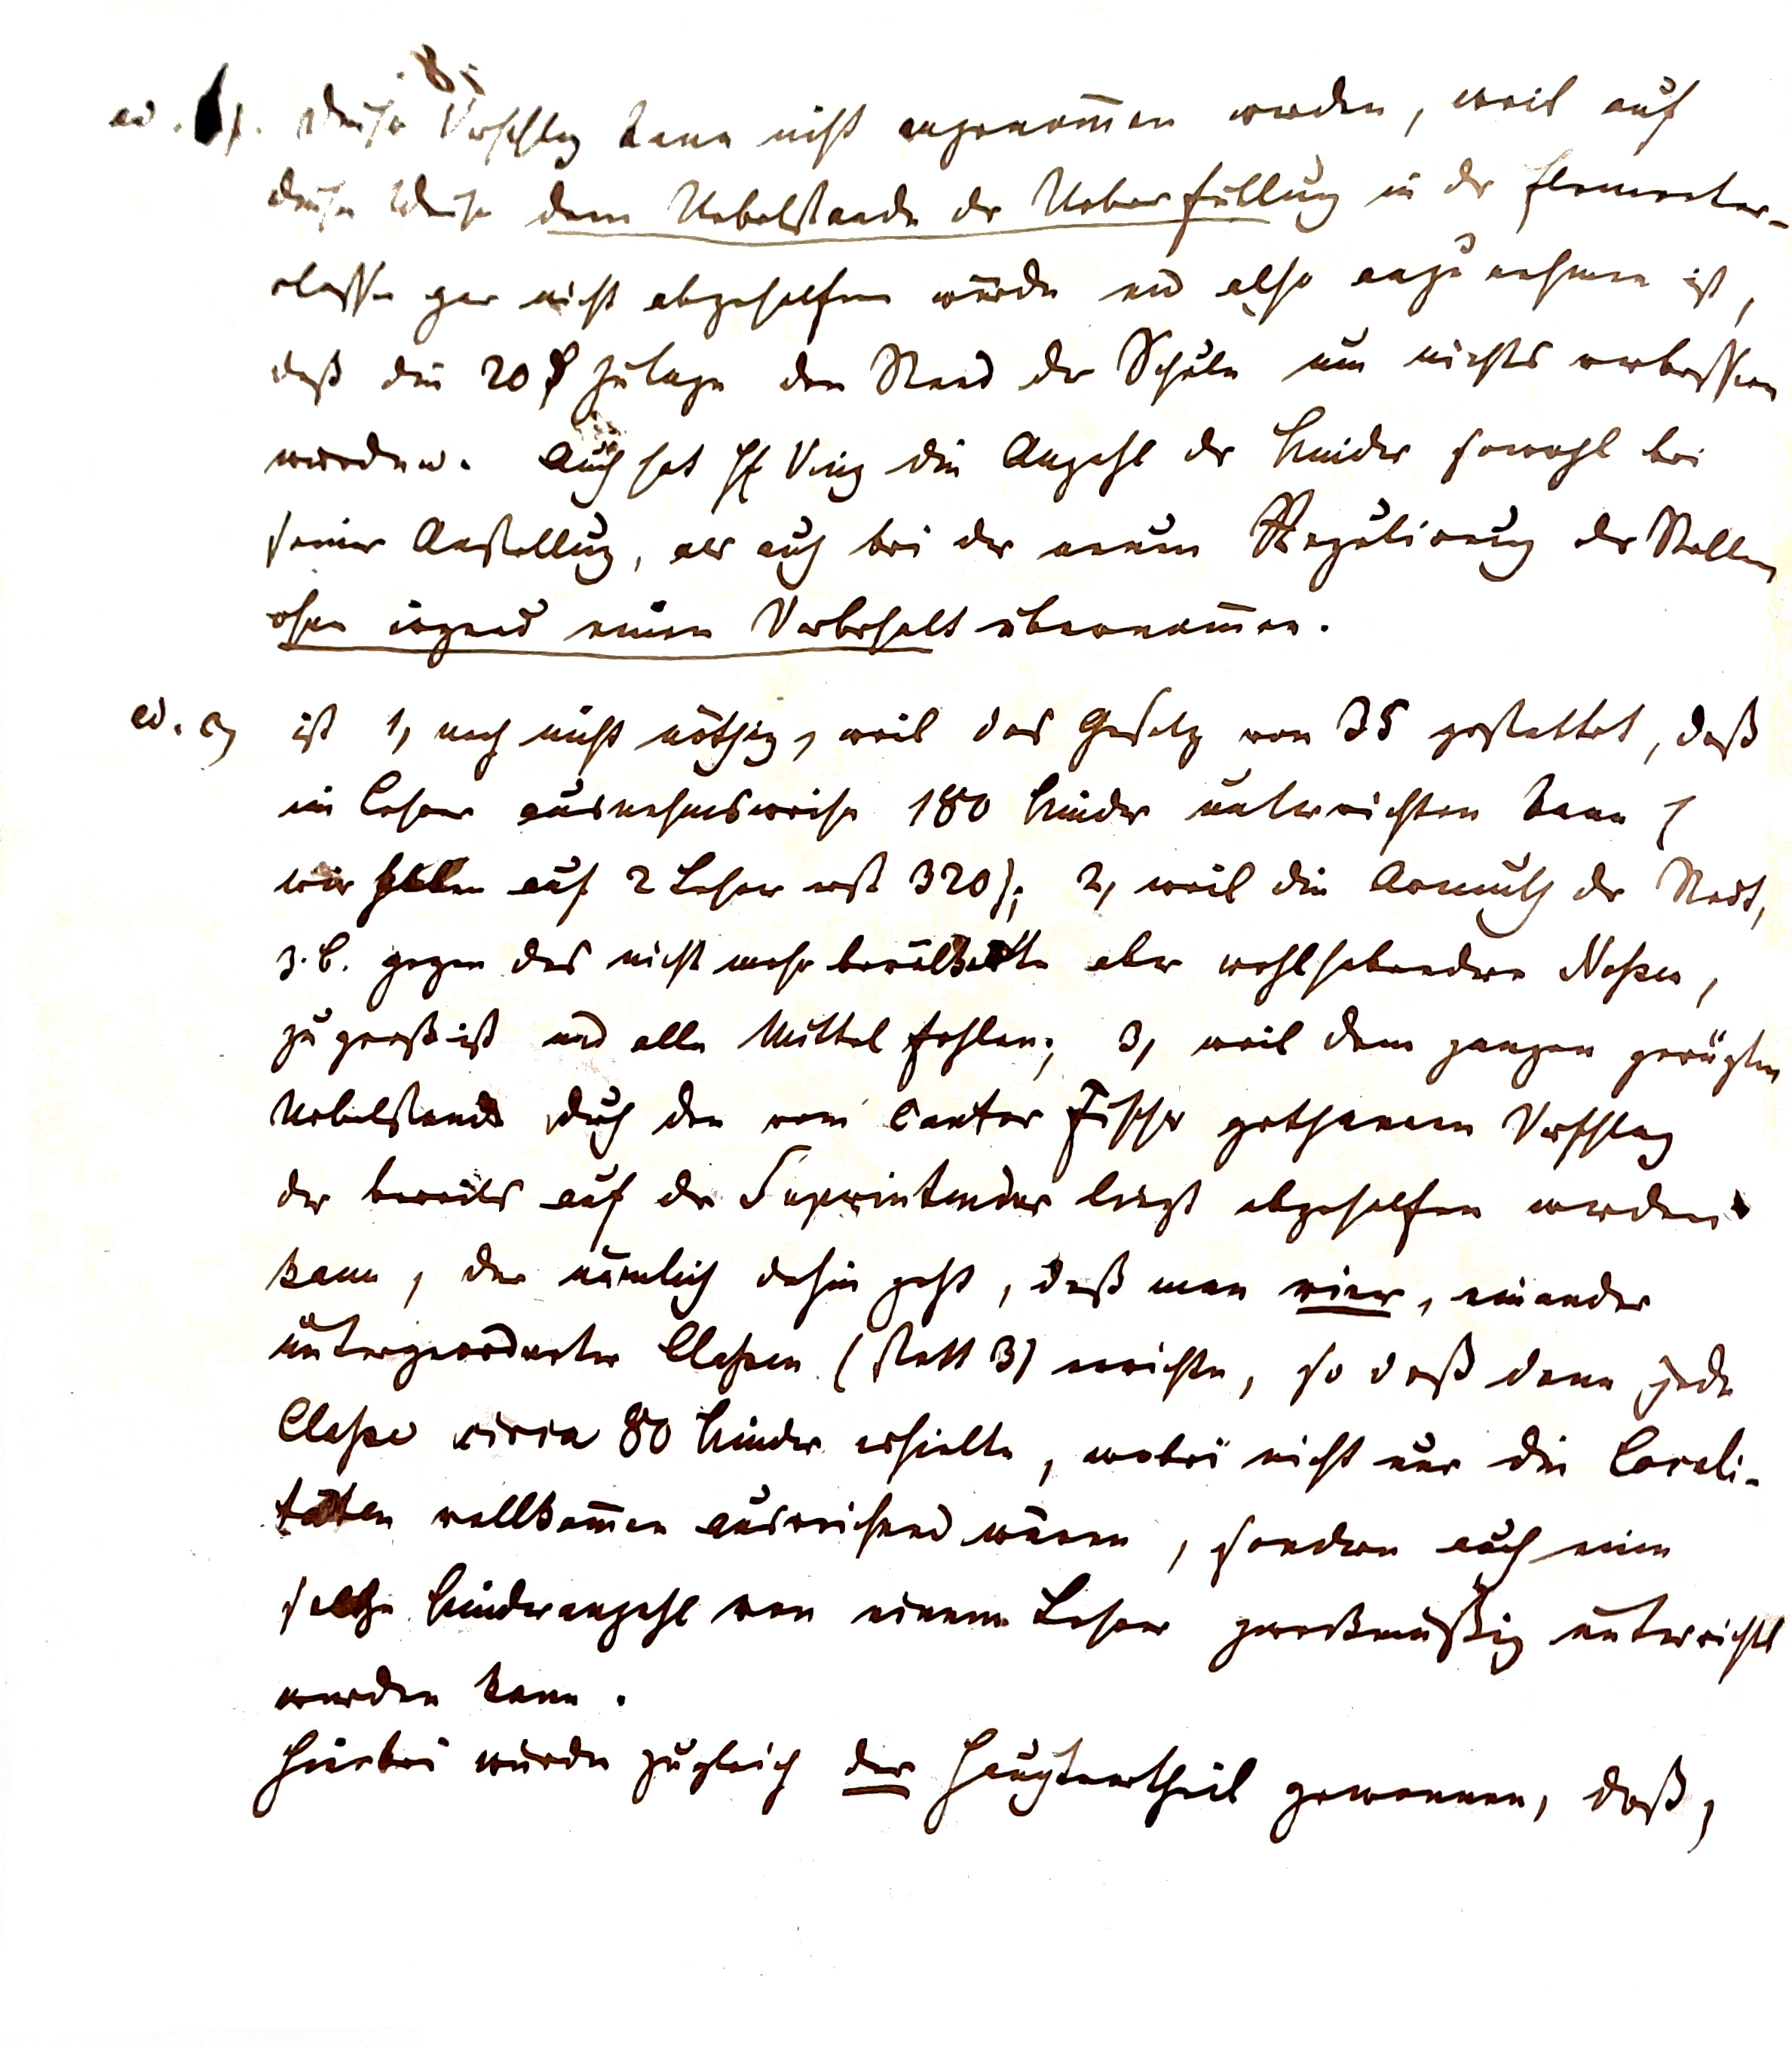 ad. b). dieser Vorschlag kann nicht angenom̄en werden, weil auf
diese Weise dem Uebelstande der Ueberfüllung in der Elementar-
classe gar nicht abgeholfen würde und also anzunehmen ist,
daß die 20 Zulage den Stand der Schule um nichts verbessern
würden. Auch hat H die Anzahl der Kinder sowohl bei
seiner Anstellung, als auch bei der neuen Regulirung der Stellen
ohne irgend einen Vorbehalt übernom̄en.
ad. c) ist 1, noch nicht nöthig, weil das Gesetz von 35 gestattet, daß
ein Lehrer ausnahmsweise 180 Kinder unterrichten kann (
wir haben auf 2 Lehrer erst 320); 2, weil die Armuth der Stadt,
z. B. gegen das nicht mehr bevölkerte aber wohlhabendere Noßen,
zu groß ist und alle Mittel fehlen; 3, weil dem ganzen gerügten
Uebelstande durch den vom Cantor Fischer gethanenen Vorschlag
der bereits auf der Superintendur liegt abgeholfen werden
kann, der nämlich dahin geht, daß man vier, einander
untergeordnete Classen (statt 3) errichte, so daß dann jede
Classe circa 80 Kinder erhielte, wobei nicht nur die Locali-
täten vollkom̄en ausreichend wären, sondern auch eine
solche Kinderanzahl von einem Lehrer zweckmäßig unterricht
werden kann.
Hierbei würde zugleich der Hauptvortheil gewonnen, daß,